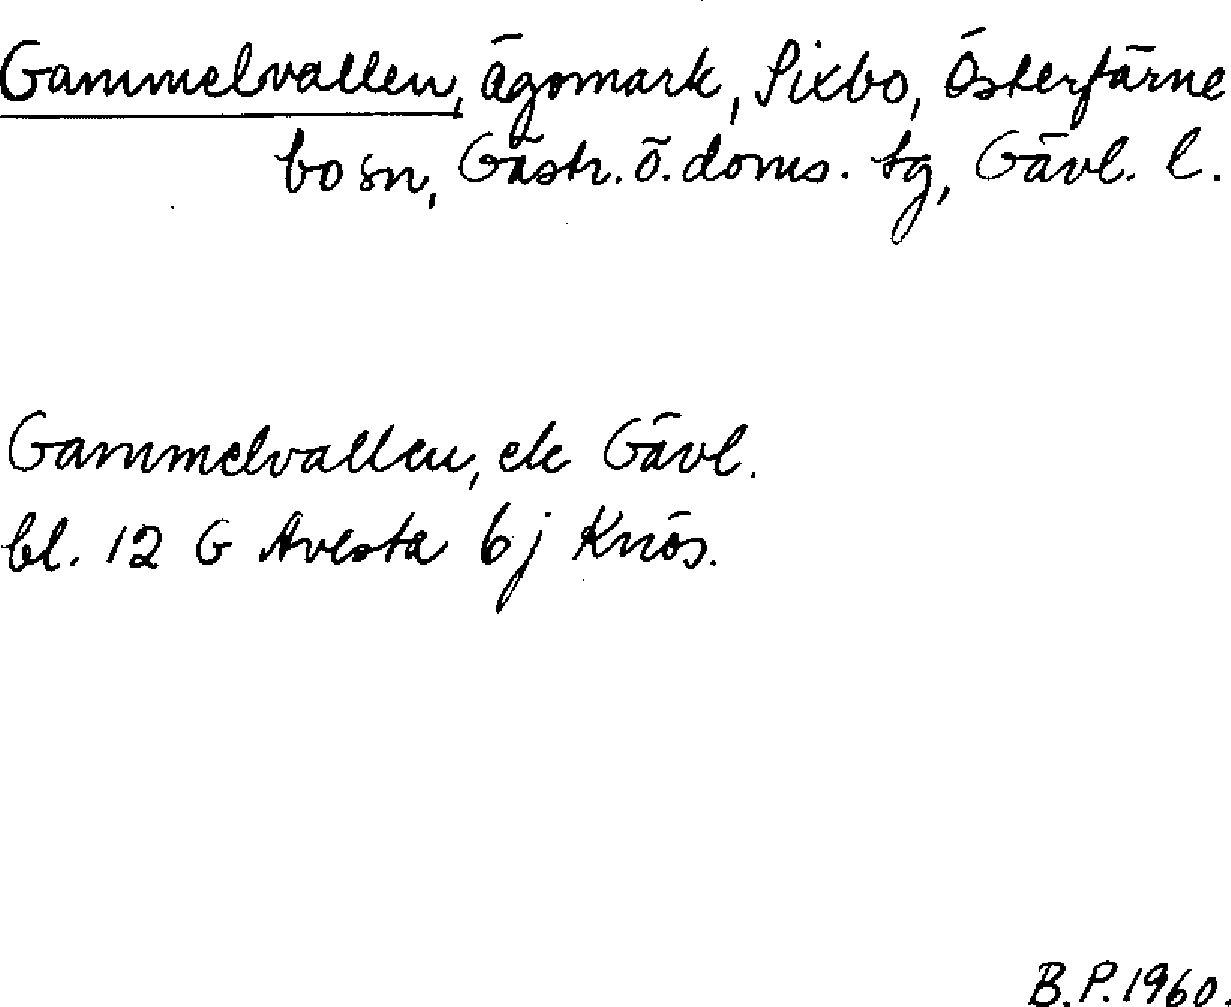 Gammelvallen, ägomark, Sixbo, Österfärne
bo sn, Gästr. ö. doms. tg, Gävl. l.
Gammelvallen, ek Gävl.
bl. 12 G Avesta 6j Knös.
B.P. 1960.